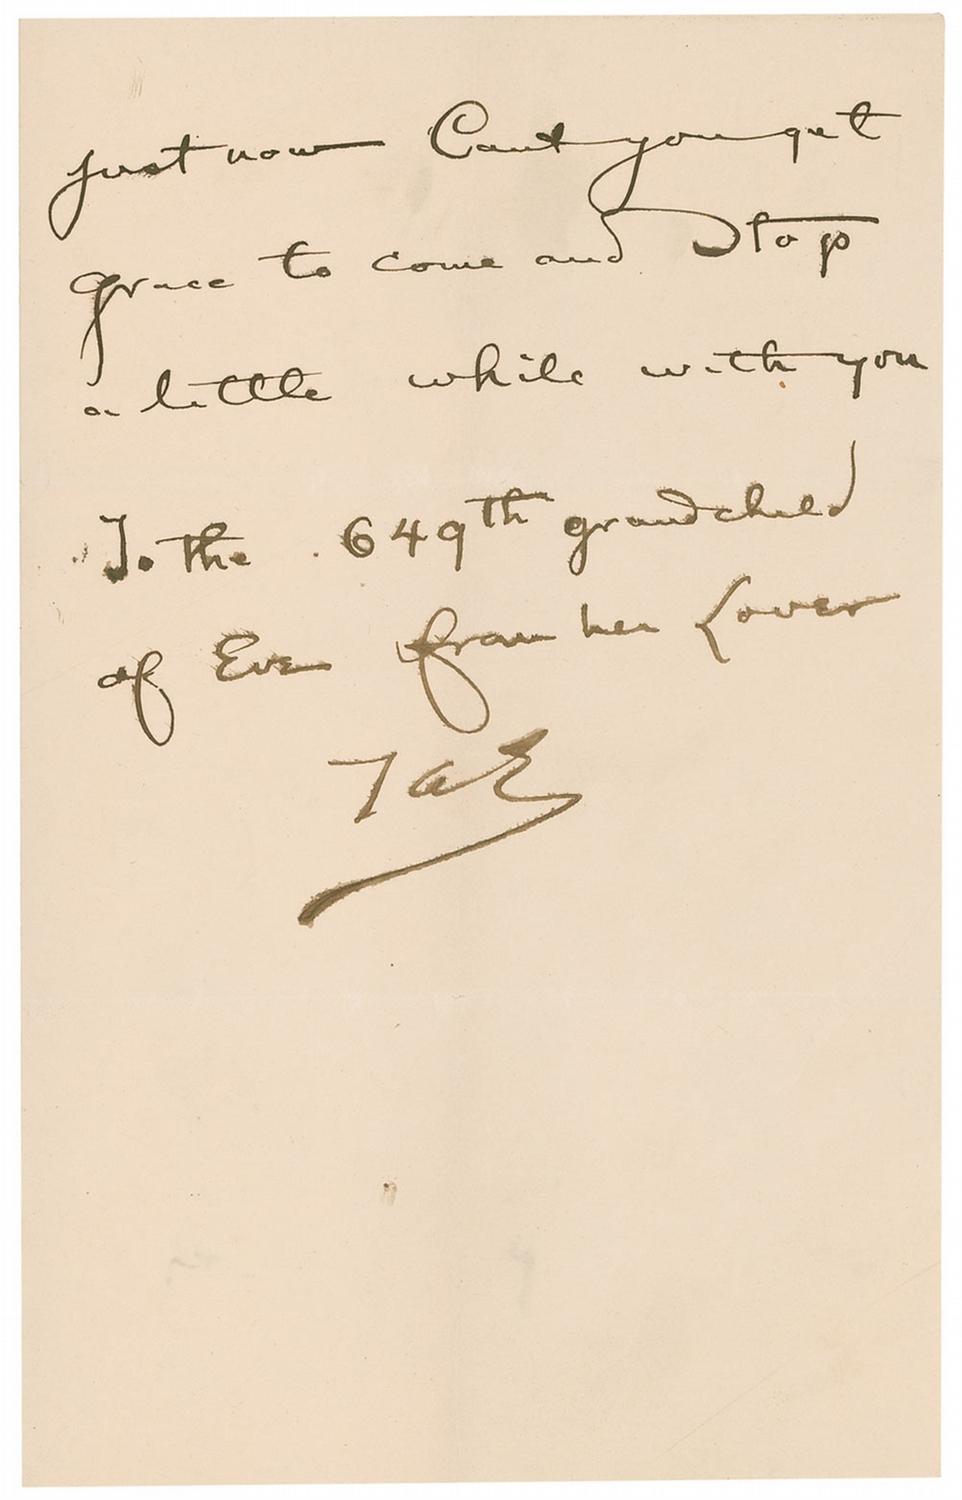 just now Cant you get
grace to come and Stop
a little while with you
To the 649th grandchild
of Eve from her Lover
TAE